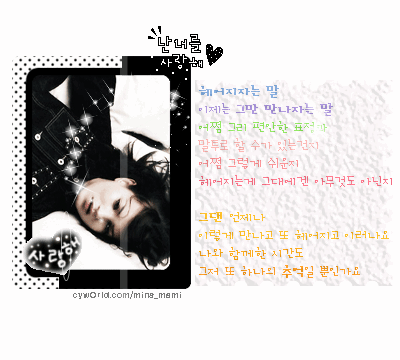 난 너를
사랑해
헤어지자는 말
이제는 그만 만나자는 말
어쩜 그리 편안한 표정과
말투로 할 수가 있는건지
어쩜 그렇게 쉬운지
헤어지는게 그대에겐 아무것도 아닌지
그댄 언제나
이렇게 만나고 또 헤어지고 이러나요
나와 함께한 시간도
그저 또 하나의 추억일 뿐인가요
사랑해
cyworld.com/mina_mami